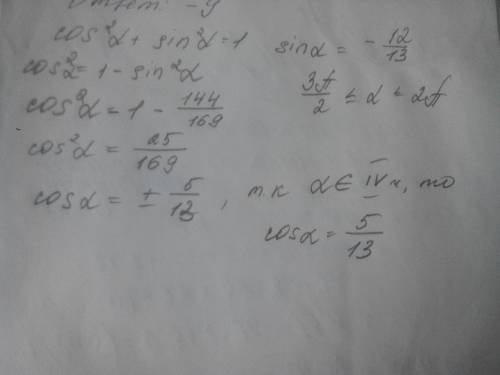 Ответ: -9
cos²α + sin²α = 1
sinα = -12/13
cos²α = 1 - sin²α
3π/2 ≤ α ≤ 2π
cos²α = 1 - 144/169
cos²α = 25/169
cosα = ± 5/13, т.к α ∈ IV ч, то
cosα = 5/13